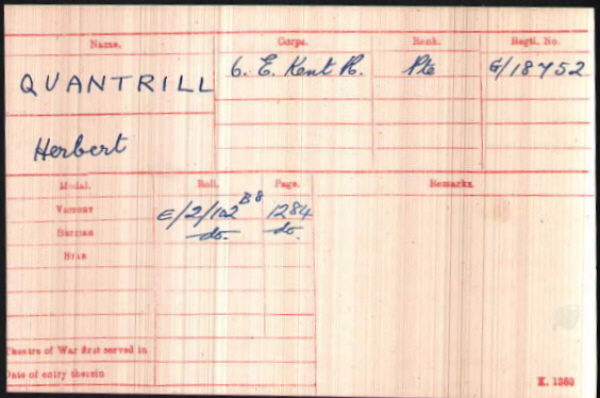 Name. Corps. Rank. Regtl. No.
QUANTRILL 6. E. Kent R. Pte G/18752
Herbert
Medal. Roll. Page. Remarks.
VICTORY E/2/102 B8 1284
BRITISH do. do.
STAR
Theatre of War first served in
Date of entry therein
K. 1380